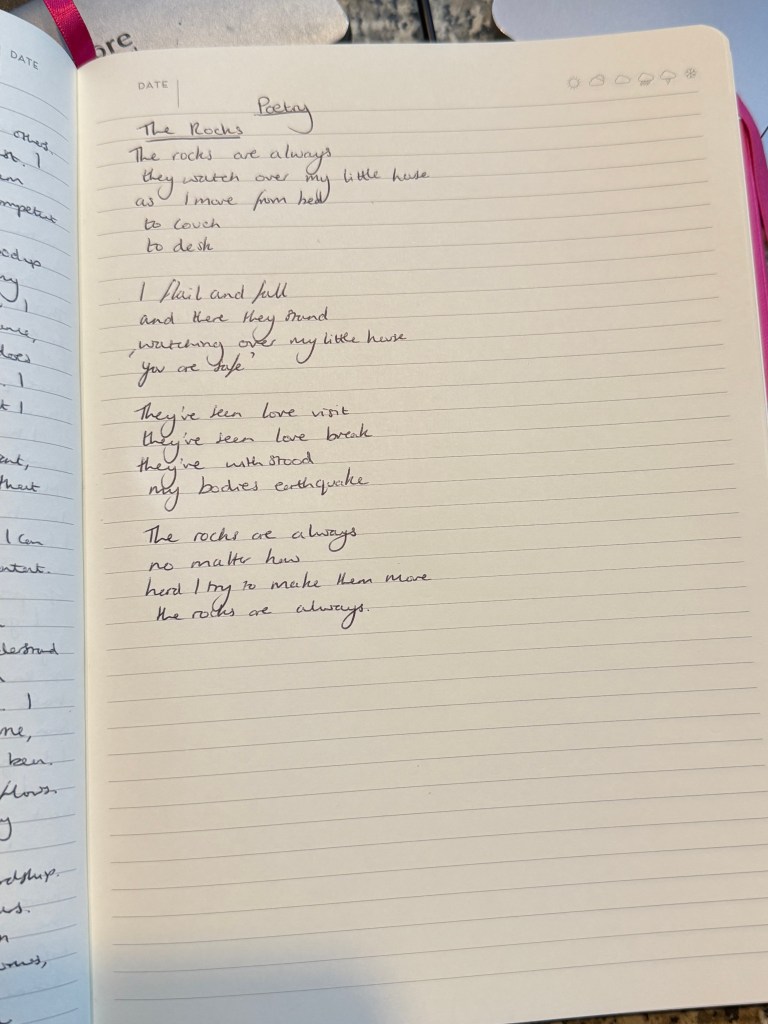 ore
DATE
others.
I
am
ompetent
my
I
does
I
I
that
I can
I
me,
been.
flows.
DATE
Poetry
The Rocks
The rocks are always
they watch over my little house
as I move from bed
to couch
to desk
I flail and fall
and there they stand
watching over my little house
'you are safe'
They've seen love visit
they've seen love break
they've withstood
my bodies earthquake
The rocks are always
no matter how
hard I try to make them move
the rocks are always.